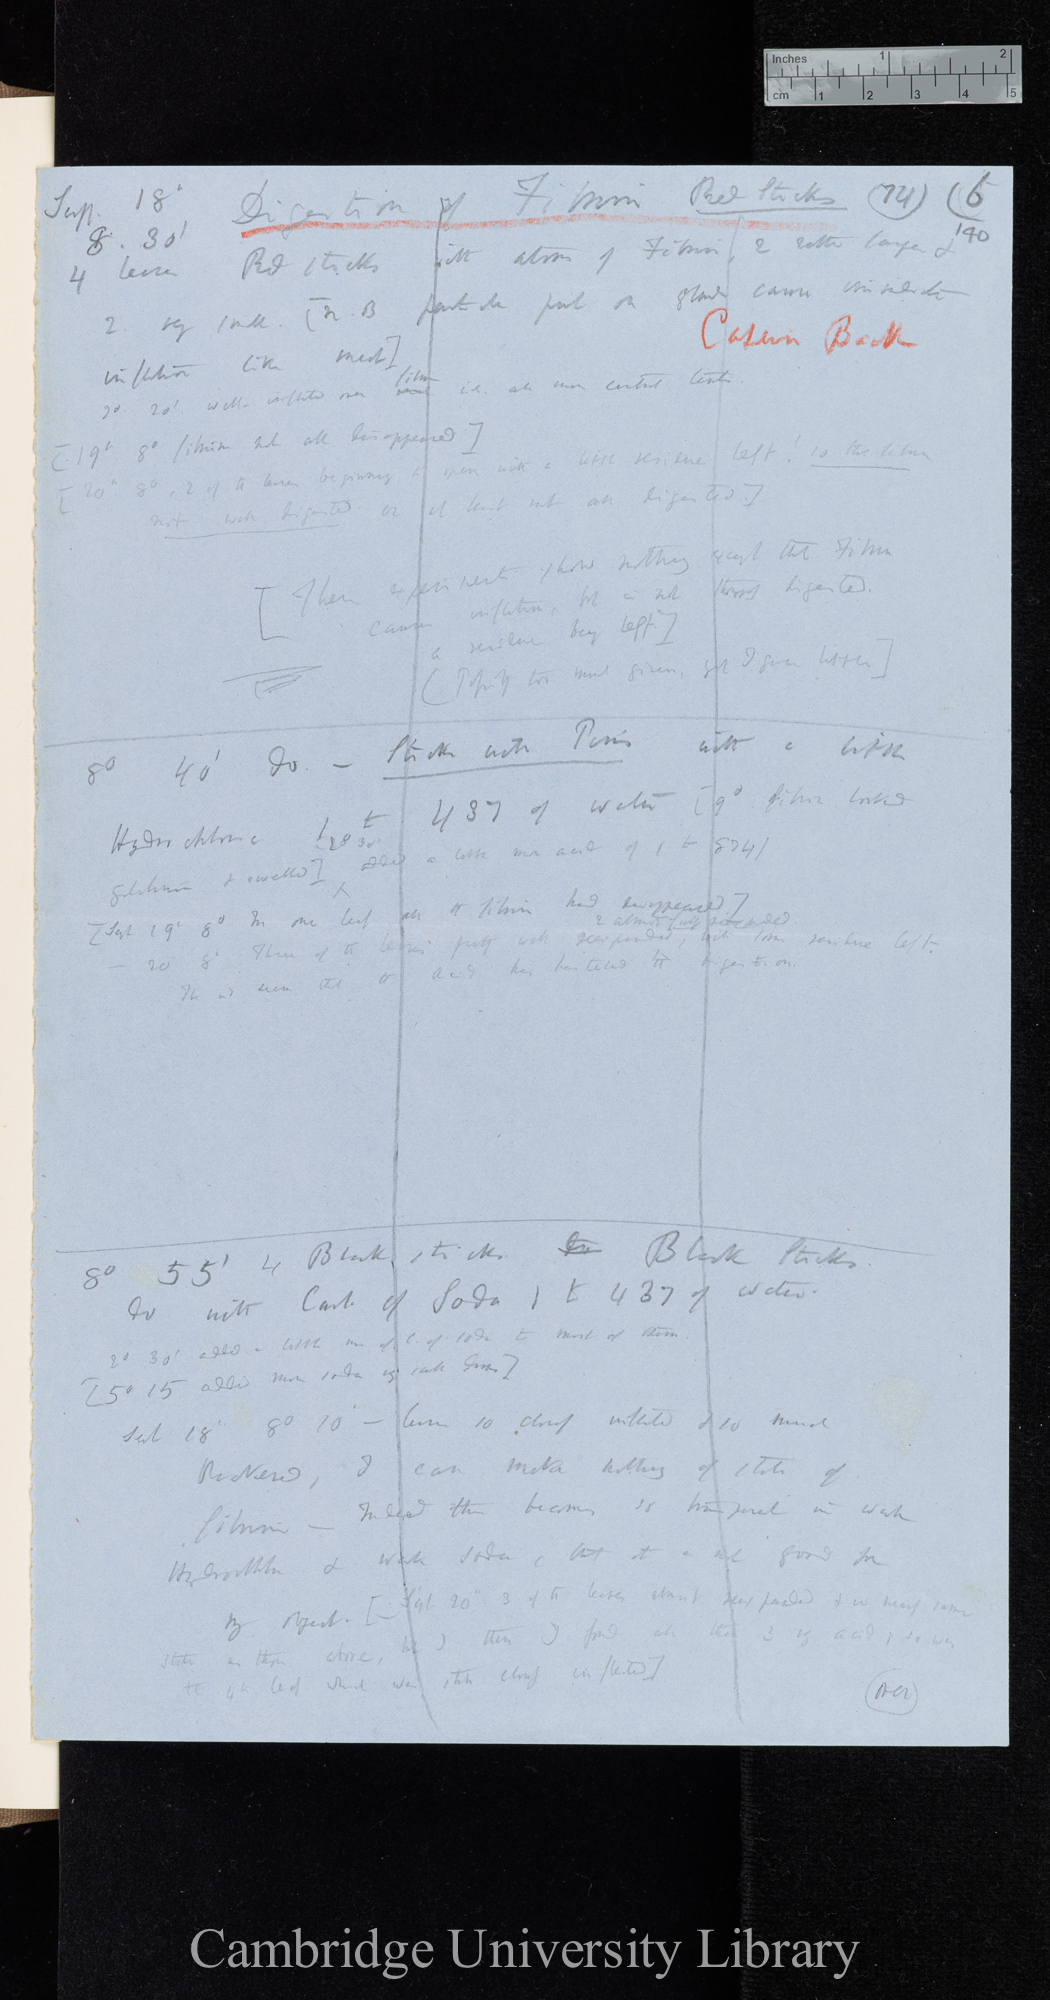 Inches 1 2
cm 1 2 3 4 5
Sept. 18° Digestion of Fibrin Red Sticks (74) (5
140
8. 30'
4 leaves Red sticks with atoms of Fibrin, 2 rather larger &
2. very small. [N.B particle put on gland cause immediate
Casein Back
inflection like meat]
2° 20' well inflected over fibrin i.e. all over central tents.
[19° 8° fibrin not all disappeared]
[20° 8°, 2 of the leaves beginning to open with a little residue left! so this fibrin
not well digested or at least not all digested]
[These experiments show nothing except that Fibrin
causes inflection, but is not digested.
a residue being left]
( too much given, yet I gave little]
8° 40' Do. — Sticks with Pins with a little
Hydrochloric 1 to 437 of water [9° fibrin looked
gelatinous & swelled] 2° 30' added a little more acid of 1 to 874/
[Sept 19° 8° In one leaf all the fibrin had disappeared]
2 almost fully
— 20 8° Three of the leaves pretty well reexpanded, with some residue left.
It seems that the acid has hastened the digestion.
8° 55' 4 Black sticks Black Sticks.
Do with Carb of Soda 1 to 437 of water.
2° 30' added a little more of C. of soda to most of them.
[5° 15 added more soda]
Sept 18° 8° 10' — leaves so closely inflected & so much
blackened, I can make nothing of state of
fibrin — Indeed this becomes so transparent in weak
Hydrochlor & weak soda, that it is not good for
my object. [Sept 20° 3 of the leaves almost reexpanded & in nearly same
state as those above, but then I find all these 3 acid, & so was
the 4th leaf which was still closely inflected]
(over)
Cambridge University Library